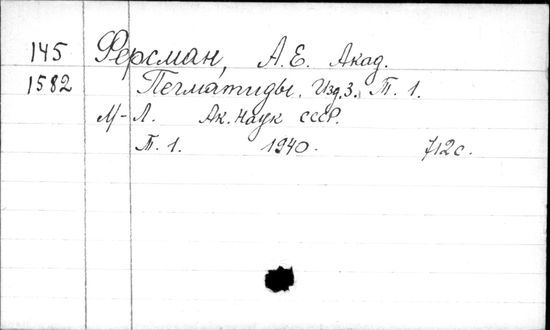 145 Ферсман, А.Е. Акад.
1582 Пегматиды. Изд. 3. Т. 1.
М-Л. Ак. Наук СССР.
Т. 1. 1940. 712 с.